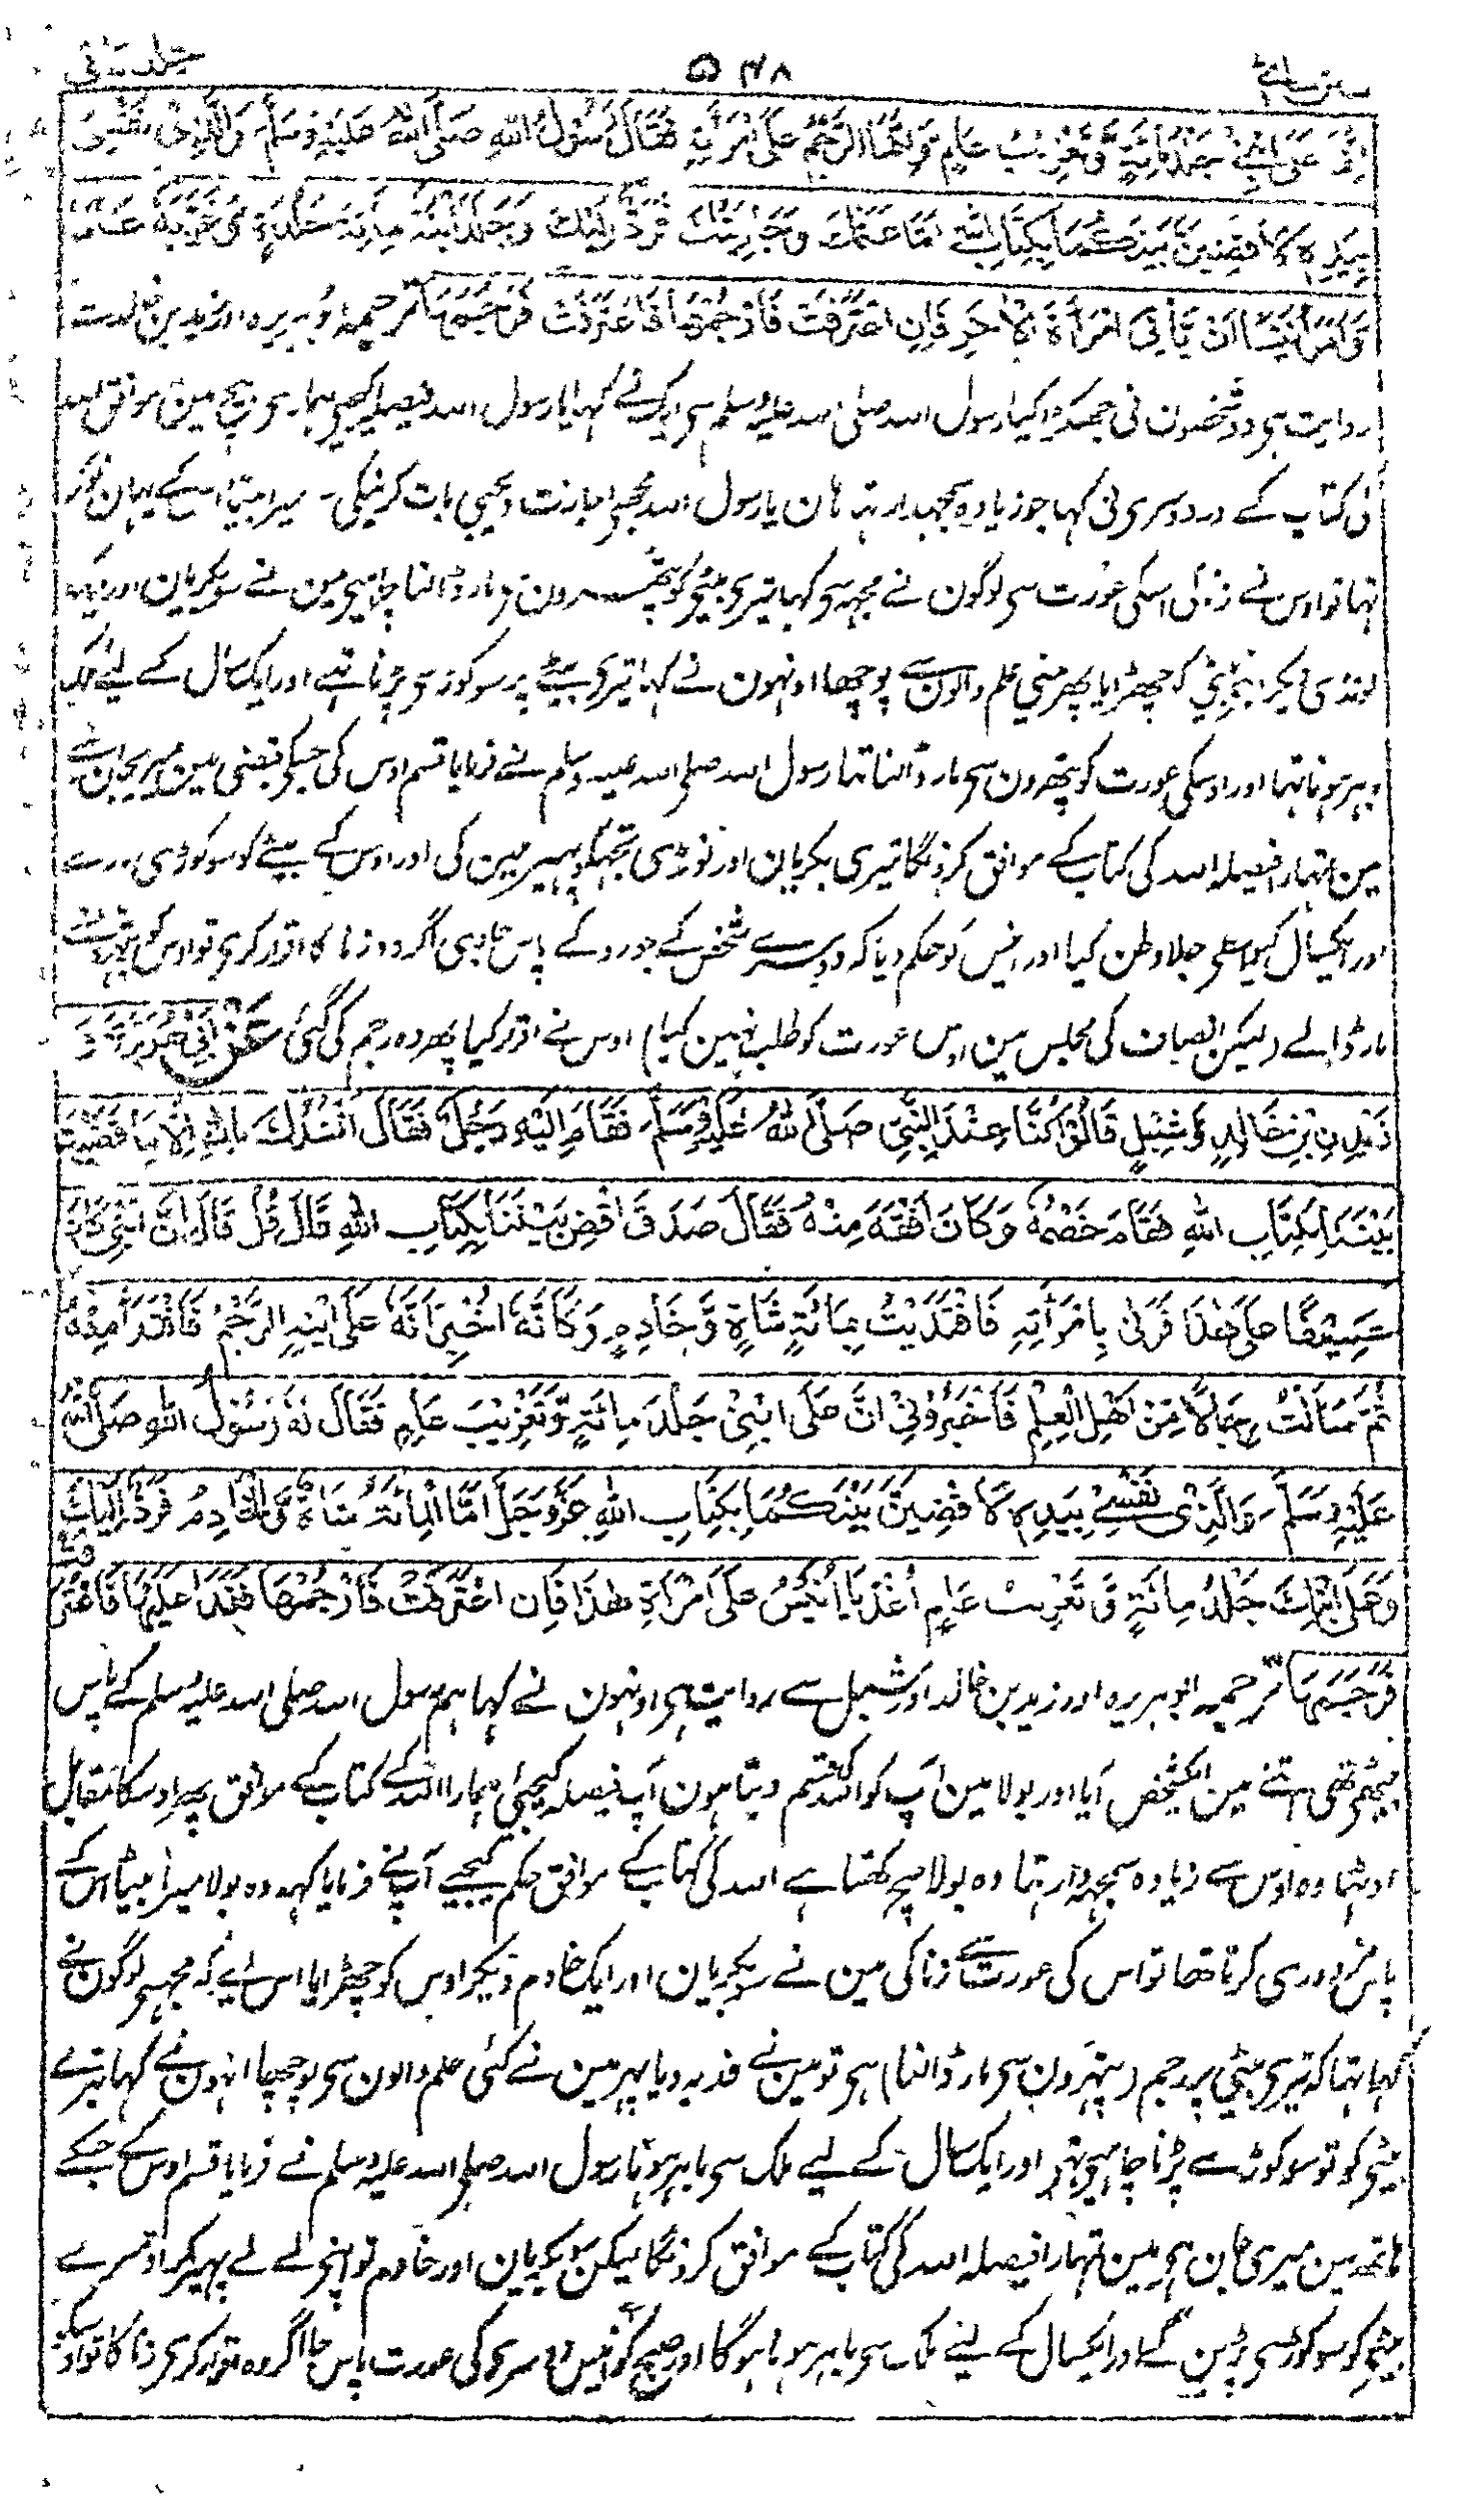 جلد ثانی ۵۴۸
اِنَّمَا عَلَى ابْنِيْ جَلْدُ مِائَةٍ وَّتَغْرِيْبُ عَامٍ وَاِنَّمَا الرَّجْمُ عَلَى امْرَأَتِهٖ فَقَالَ رَسُوْلُ اللهِ صَلَّى اللهُ عَلَيْهِ وَسَلَّمَ وَالَّذِىْ نَفْسِىْ
بِيَدِهٖ لَاَقْضِيَنَّ بَيْنَكُمَا بِكِتَابِ اللهِ اَمَّا غَنَمُكَ وَجَارِيَتُكَ فَرَدٌّ اِلَيْكَ وَجَلَدَ ابْنَهٗ مِائَةَ جَلْدَةٍ وَّغَرَّبَهٗ عَامًا
وَاَمَرَ اُنَيْسًا اَنْ يَّأْتِىَ امْرَأَةَ الْاٰخَرِ فَاِنِ اعْتَرَفَتْ فَارْجُمْهَا فَاعْتَرَفَتْ فَرَجَمَهَا ترجمہ ابوہریرہ اور زید بن خالد سے
روایت ہی دو شخصون نی جھگڑا کیا رسول اللہ صلی اللہ علیہ وسلم سی ایک نے کہا یا رسول اللہ فیصلہ کیجی ہماری بیچ مین موافق اللہ
کی کتاب کے اور دوسری نی کہا جو زیادہ سمجھدار تہا ہان یا رسول اللہ مجھی اجازت دیجیی بات کرنیکی۔ میرا بیٹا اسکے یہان نوکر
تہا تو اوس نے زنا کی اسکی عورت سی لوگون نے مجہہ سی کہا تیری بیٹی کو پتھرون سی مار ڈالنا چاہیی مین نے سو بکریان اور ایک
لونڈی دیکر اپنی بیٹی کو چھڑایا پھر مینی علم والون سے پوچھا اونہون نے کہا تیری بیٹے پر سو کوڑی پڑنا تہے اور ایک سال کے لیے ملک
باہر ہونا تہا اور اوسکی عورت کو پتھرون سی مار ڈالنا تہا رسول اللہ صلی اللہ علیہ وسلم نے فرمایا قسم اوس کی جسکی قبضی مین میری جان ہے
مین تمہارا فیصلہ اللہ کی کتاب کے موافق کرونگا تیری بکریان اور لونڈی تجہکو پہیر مین کی اور اوس کے بیٹے کو سو کوڑی مارے
اور ایکسال کیواسطی جلاوطن کیا اور انیس کو حکم دیا کہ دوسرے شخص کے جورو کے پاس جاویں اگر وہ زنا کا اقرار کری تو اوس کو پتھرون سے
مار ڈالے (لیکن انصاف کی مجلس مین اوس عورت کو طلب نہین کیا) اوس نے اقرار کیا پھر وہ رجم کی گئی عَنْ اَبِىْ هُرَيْرَةَ وَ
زَيْدِ بْنِ خَالِدٍ وَّشِبْلٍ قَالُوْا كُنَّا عِنْدَ النَّبِىِّ صَلَّى اللهُ عَلَيْهِ وَسَلَّمَ فَقَامَ اِلَيْهِ رَجُلٌ فَقَالَ اَنْشُدُكَ بِاللهِ اِلَّا مَا قَضَيْتَ
بَيْنَنَا بِكِتَابِ اللهِ فَقَامَ خَصْمُهٗ وَكَانَ اَفْقَهَ مِنْهُ فَقَالَ صَدَقَ اقْضِ بَيْنَنَا بِكِتَابِ اللهِ قَالَ قُلْ قَالَ اِنَّ ابْنِىْ كَانَ
عَسِيْفًا عَلٰى هٰذَا فَزَنٰى بِامْرَأَتِهٖ فَافْتَدَيْتُ بِمِائَةِ شَاةٍ وَّخَادِمٍ وَكَاَنَّهٗ اُخْبِرَ اَنَّهٗ عَلَى ابْنِهِ الرَّجْمُ فَافْتَدٰى مِنْهُ
ثُمَّ سَأَلْتُ رِجَالًا مِّنْ اَهْلِ الْعِلْمِ فَاَخْبَرُوْنِىْ اَنَّ عَلَى ابْنِىْ جَلْدَ مِائَةٍ وَّتَغْرِيْبَ عَامٍ فَقَالَ لَهٗ رَسُوْلُ اللهِ صَلَّى اللهُ
عَلَيْهِ وَسَلَّمَ وَالَّذِىْ نَفْسِىْ بِيَدِهٖ لَاَقْضِيَنَّ بَيْنَكُمَا بِكِتَابِ اللهِ عَزَّوَجَلَّ اَمَّا الْمِائَةُ شَاةٍ وَّالْخَادِمُ فَرَدٌّ اِلَيْكَ
وَعَلَى ابْنِكَ جَلْدُ مِائَةٍ وَّتَغْرِيْبُ عَامٍ اُغْدُ يَا اُنَيْسُ عَلَى امْرَأَةِ هٰذَا فَاِنِ اعْتَرَفَتْ فَارْجُمْهَا فَغَدَا عَلَيْهَا فَاعْتَرَفَتْ
فَرَجَمَهَا ترجمہ ابوہریرہ اور زید بن خالد اور شبل سے روایت ہی اونہون نے کہا ہم رسول اللہ صلی اللہ علیہ وسلم کے پاس
بیٹھے تھی اتنے مین ایکشخص آیا اور بولا مین آپ کو اللہ کی قسم دیتا ہون آپ فیصلہ کیجیئی ہمارا اللہ کے کتاب کے موافق پھر اوسکا مقابل
اوٹہا وہ اوس سے زیادہ سمجہہ دار تہا وہ بولا سچ کہتا ہے اللہ کی کتاب کے موافق حکم کیجیے آپنے فرمایا کہہ وہ بولا میرا بیٹا اس کے
پاس مزدوری کرتا تھا تو اس کی عورت سے زنا کی مین نے سو بکریان اور ایک خادم دیکر اوس کو چھڑایا اس لیے کہ مجہسی لوگون نے
کہا تہا کہ تیری بیٹی پر رجم (پتہرون سی مار ڈالنا) ہی تو مین نے فدیہ دیا پہر مین نے کئی علم والون سی پوچھا انہون نے کہا تیرے
بیٹی کو تو سو کوڑے پڑنا چاہیی تہی اور ایک سال کے لیے ملک سی باہر ہونا رسول اللہ صلی اللہ علیہ وسلم نے فرمایا قسم اوس کے جسکے
ہاتھ مین میری جان ہی مین تمہارا فیصلہ اللہ کی کتاب کے موافق کرونگا لیکن سو بکریان اور خادم تو اپنی لے لے پہیر کر اور تیرے
بیٹی کو سو کوڑی پڑین گے اور ایکسال کے لیے ملک سی باہر ہونا ہوگا اور صبح کو انیس دوسری کی عورت پاس جا اگر وہ اقرار کری زنا کا تو اوسکو